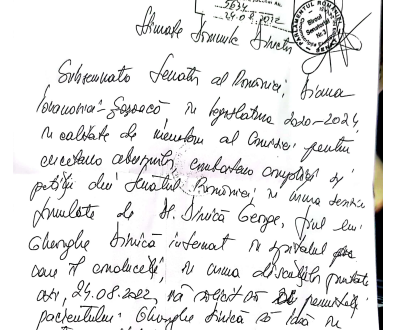 5634
24.08.2022
PARLAMENTUL ROMÂNIEI
Biroul
Senatorial
Nr. 1
Stimate Domnule Director
Subsemnata Senator al României, Diana
Iovanovici-Șoșoacă în legislatura 2020-2024,
în calitate de membru al Comisiei pentru
cercetarea abuzurilor, combaterea corupției și
petiții din Senatul României, în urma
formulate de D. Dinică George, fiul lui
Gheorghe Dinică internat în spitalul
care îl conduceți, în urma discuțiilor purtate
azi, 24.08.2022, vă solicit să permiteți
pacientului Gheorghe Dinică să în